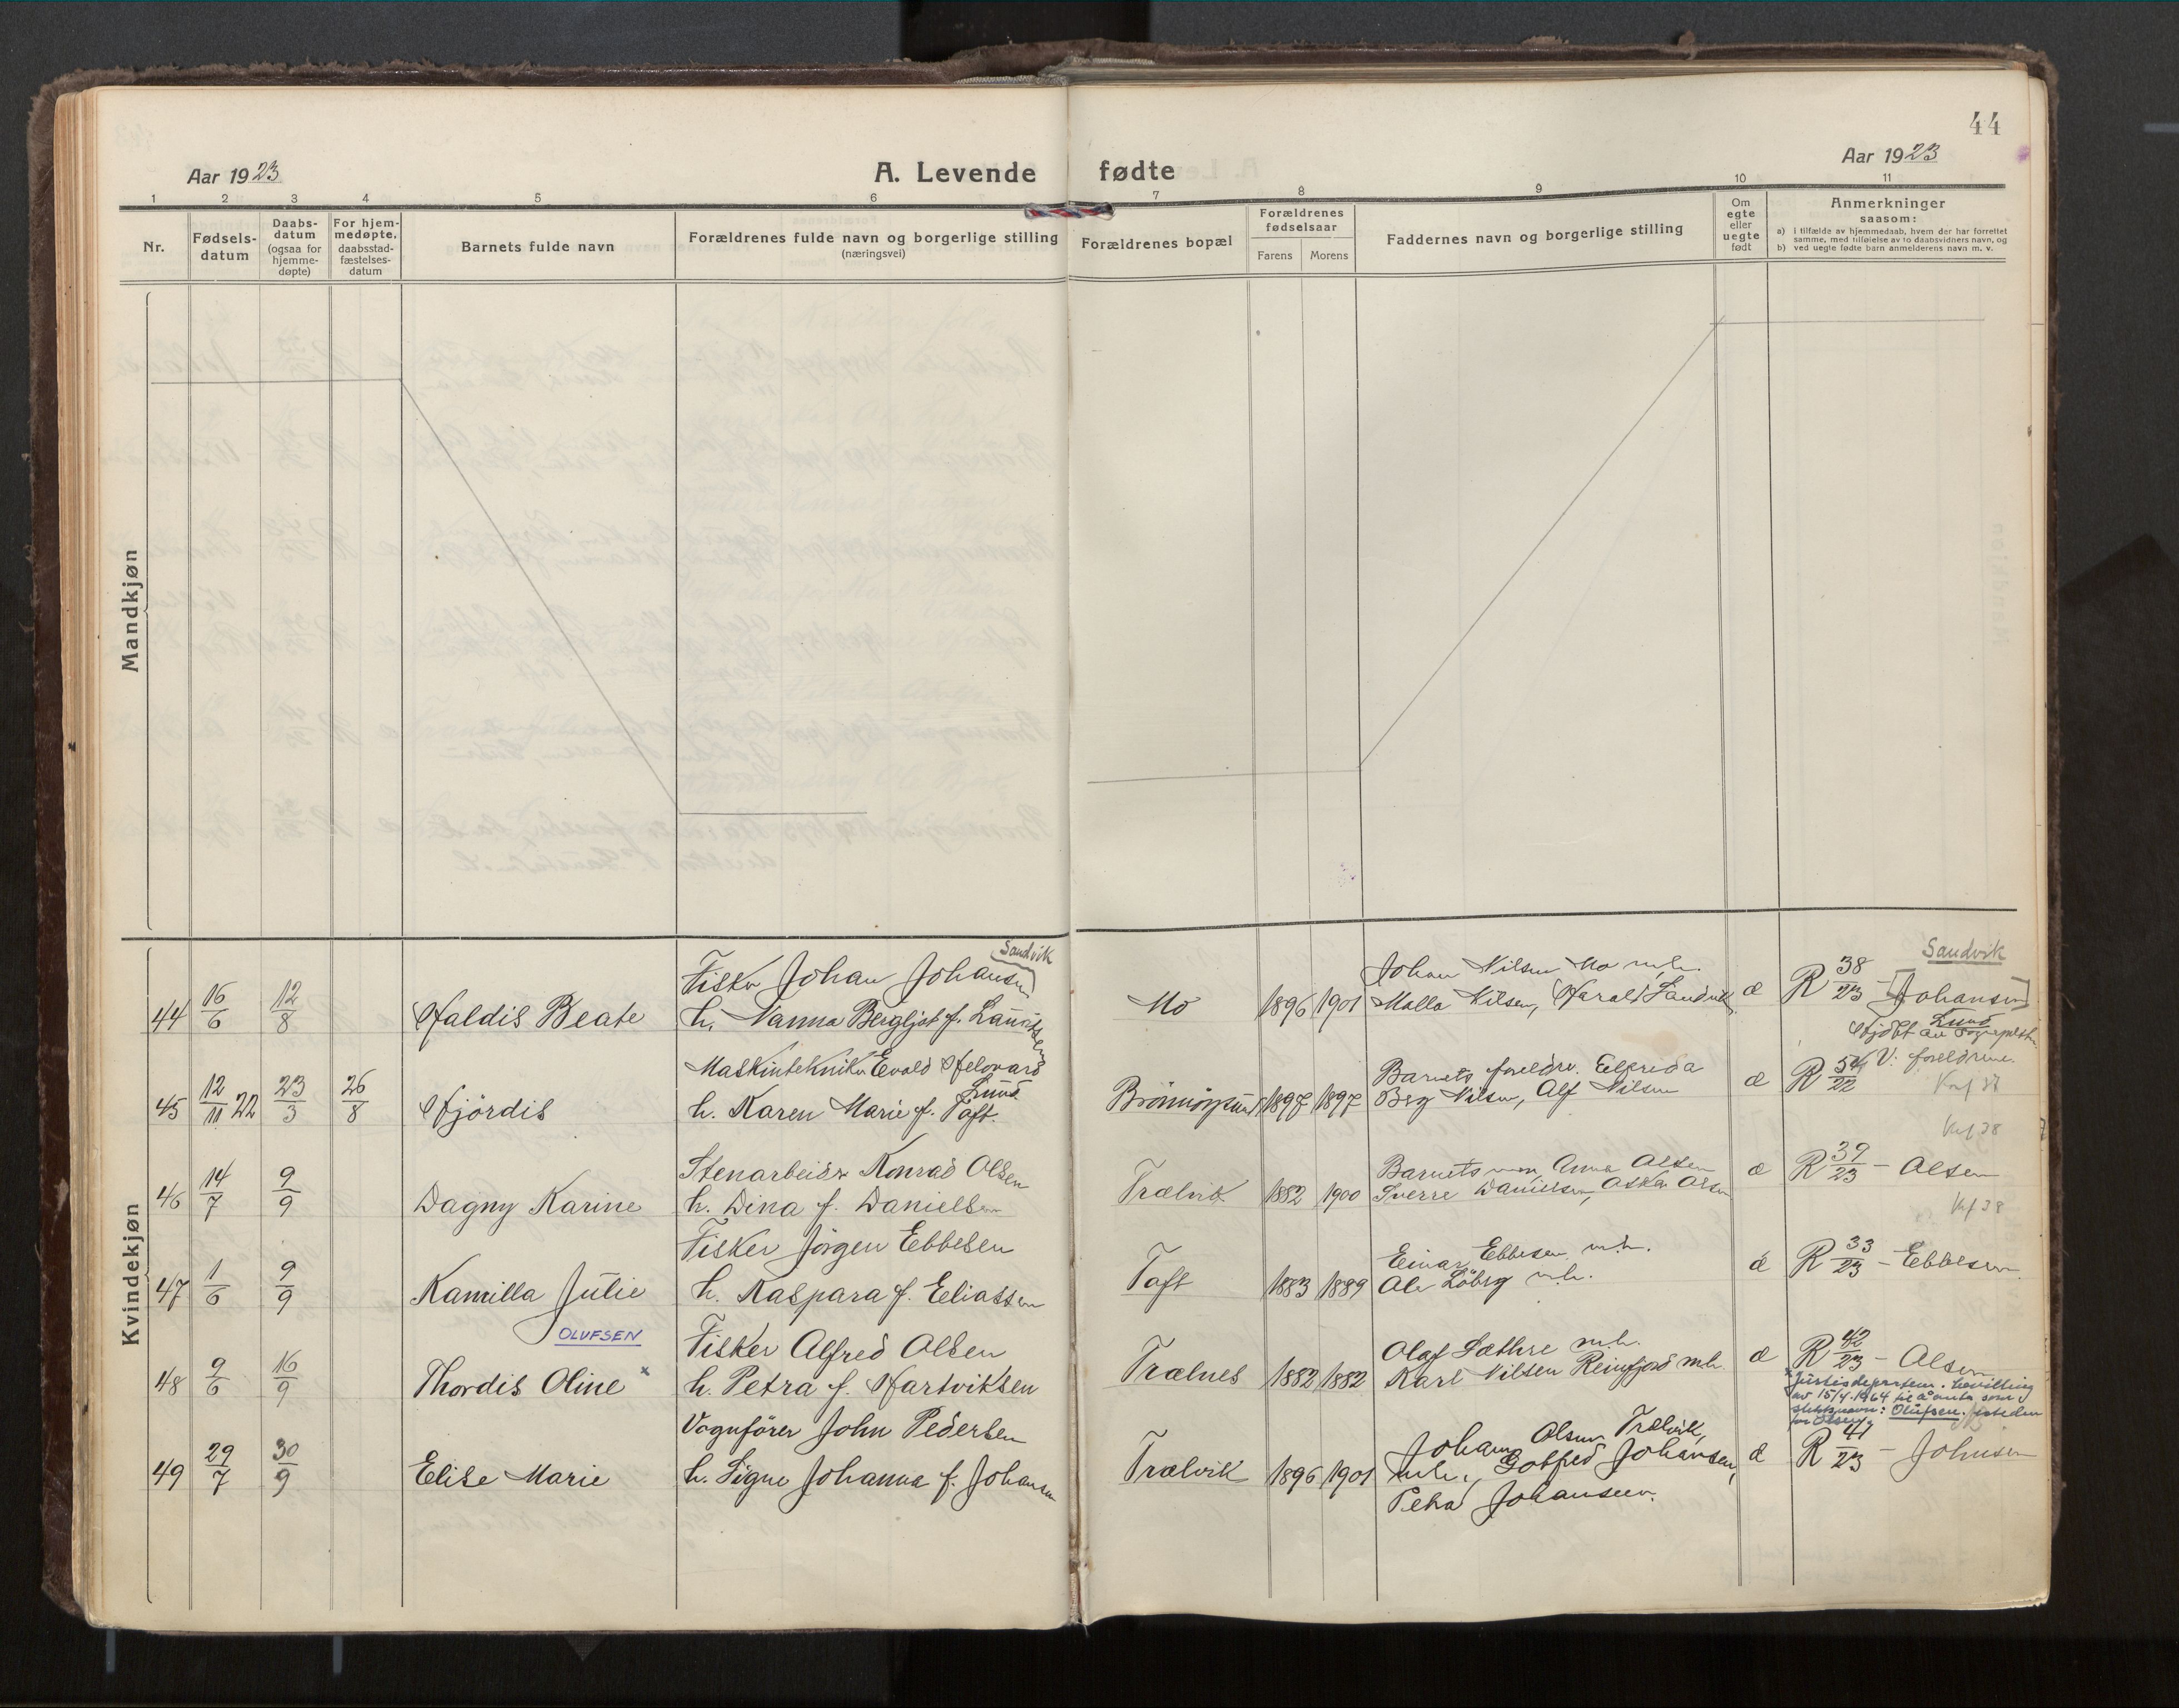 44
Aar 1923
A. Levende fødte
Aar 1923
1 2 3 4 5 6 7 8 9 10 11
Nr.
Fødsels-
datum
Daabs-
datum
(ogsaa for
hjemme-
døpte)
For hjem-
medøpte,
daabsstad-
fæstelses-
datum
Barnets fulde navn
Forældrenes fulde navn og borgerlige stilling
(næringsvei)
Forældrenes bopæl
Forældrenes
fødselsaar
Farens Morens
Faddernes navn og borgerlige stilling
Om
egte
eller
uegte
født
Anmerkninger
saasom:
a) i tilfælde av hjemmedaab, hvem der har forrettet
samme, med tilføielse av to daabsvidners navn, og
b) ved uegte fødte barn anmelderens navn m. v.
Mandkjøn
Kvindekjøn
44 16/6 12/8 Haldis Beate
Fisker Johan Johansen
Sandvik
h. Nanna Bergljot f. Lauritsen
Mo 1896 1901
Johan Nilsen Mo m.h.
Malla Nilsen, Harald Sandvik
æ R 38/23 - [Johansen]
Sandvik
45 12/11 22 23/3 26/8 Hjördis
Maskintekniker Evald Helovard
Lund
h. Karen Marie f. Toft.
Brönnöysund 1897 1897
Barnets foreldre. Elfreda
Berg Nilsen, Alf Nilsen
æ R 54/22
Lund
Hjdbt av Sogneprest
V: foreldrene.
Knf 37
46 14/7 9/9 Dagny Karine
Stenarbeider Konrad Olsen
h. Dina f. Danielsen
Trælvik 1882 1900
Barnets mor, Anna Olsen
Sverre Danielsen, Oskar Olsen
æ R 39/23 - Olsen
Knf 38
47 1/6 9/9 Kamilla Julie
Fisker Jörgen Ebbesen
h. Kaspara f. Eliassen
Toft 1883 1889
Einar Ebbesen m.h.
Ole Löberg m.h.
æ R 33/23 - Ebbesen
Knf 38
48 9/6 16/9 Thordis Oline x
OLUFSEN
Fisker Alfred Olsen
h. Petra f. Hartviksen
Trælnes 1882 1882
Olaf Sæthre m.h.
Karl Nilsen Reinfjord m.h.
æ R 42/23 - Olsen
x Justisdepartem. bevilling
av 15/4.1964 til å anta som
slektsnavn: Olufsen. isteden
for Olsen.
49 29/7 30/9 Elise Marie
Vognfører John Pedersen
h. Signe Johanna f. Johansen
Trælvik 1896 1901
Johan Olsen Trælvik,
m.h., Gotfred Johansen,
Petra Johansen.
æ R 41/23 - Johnsen